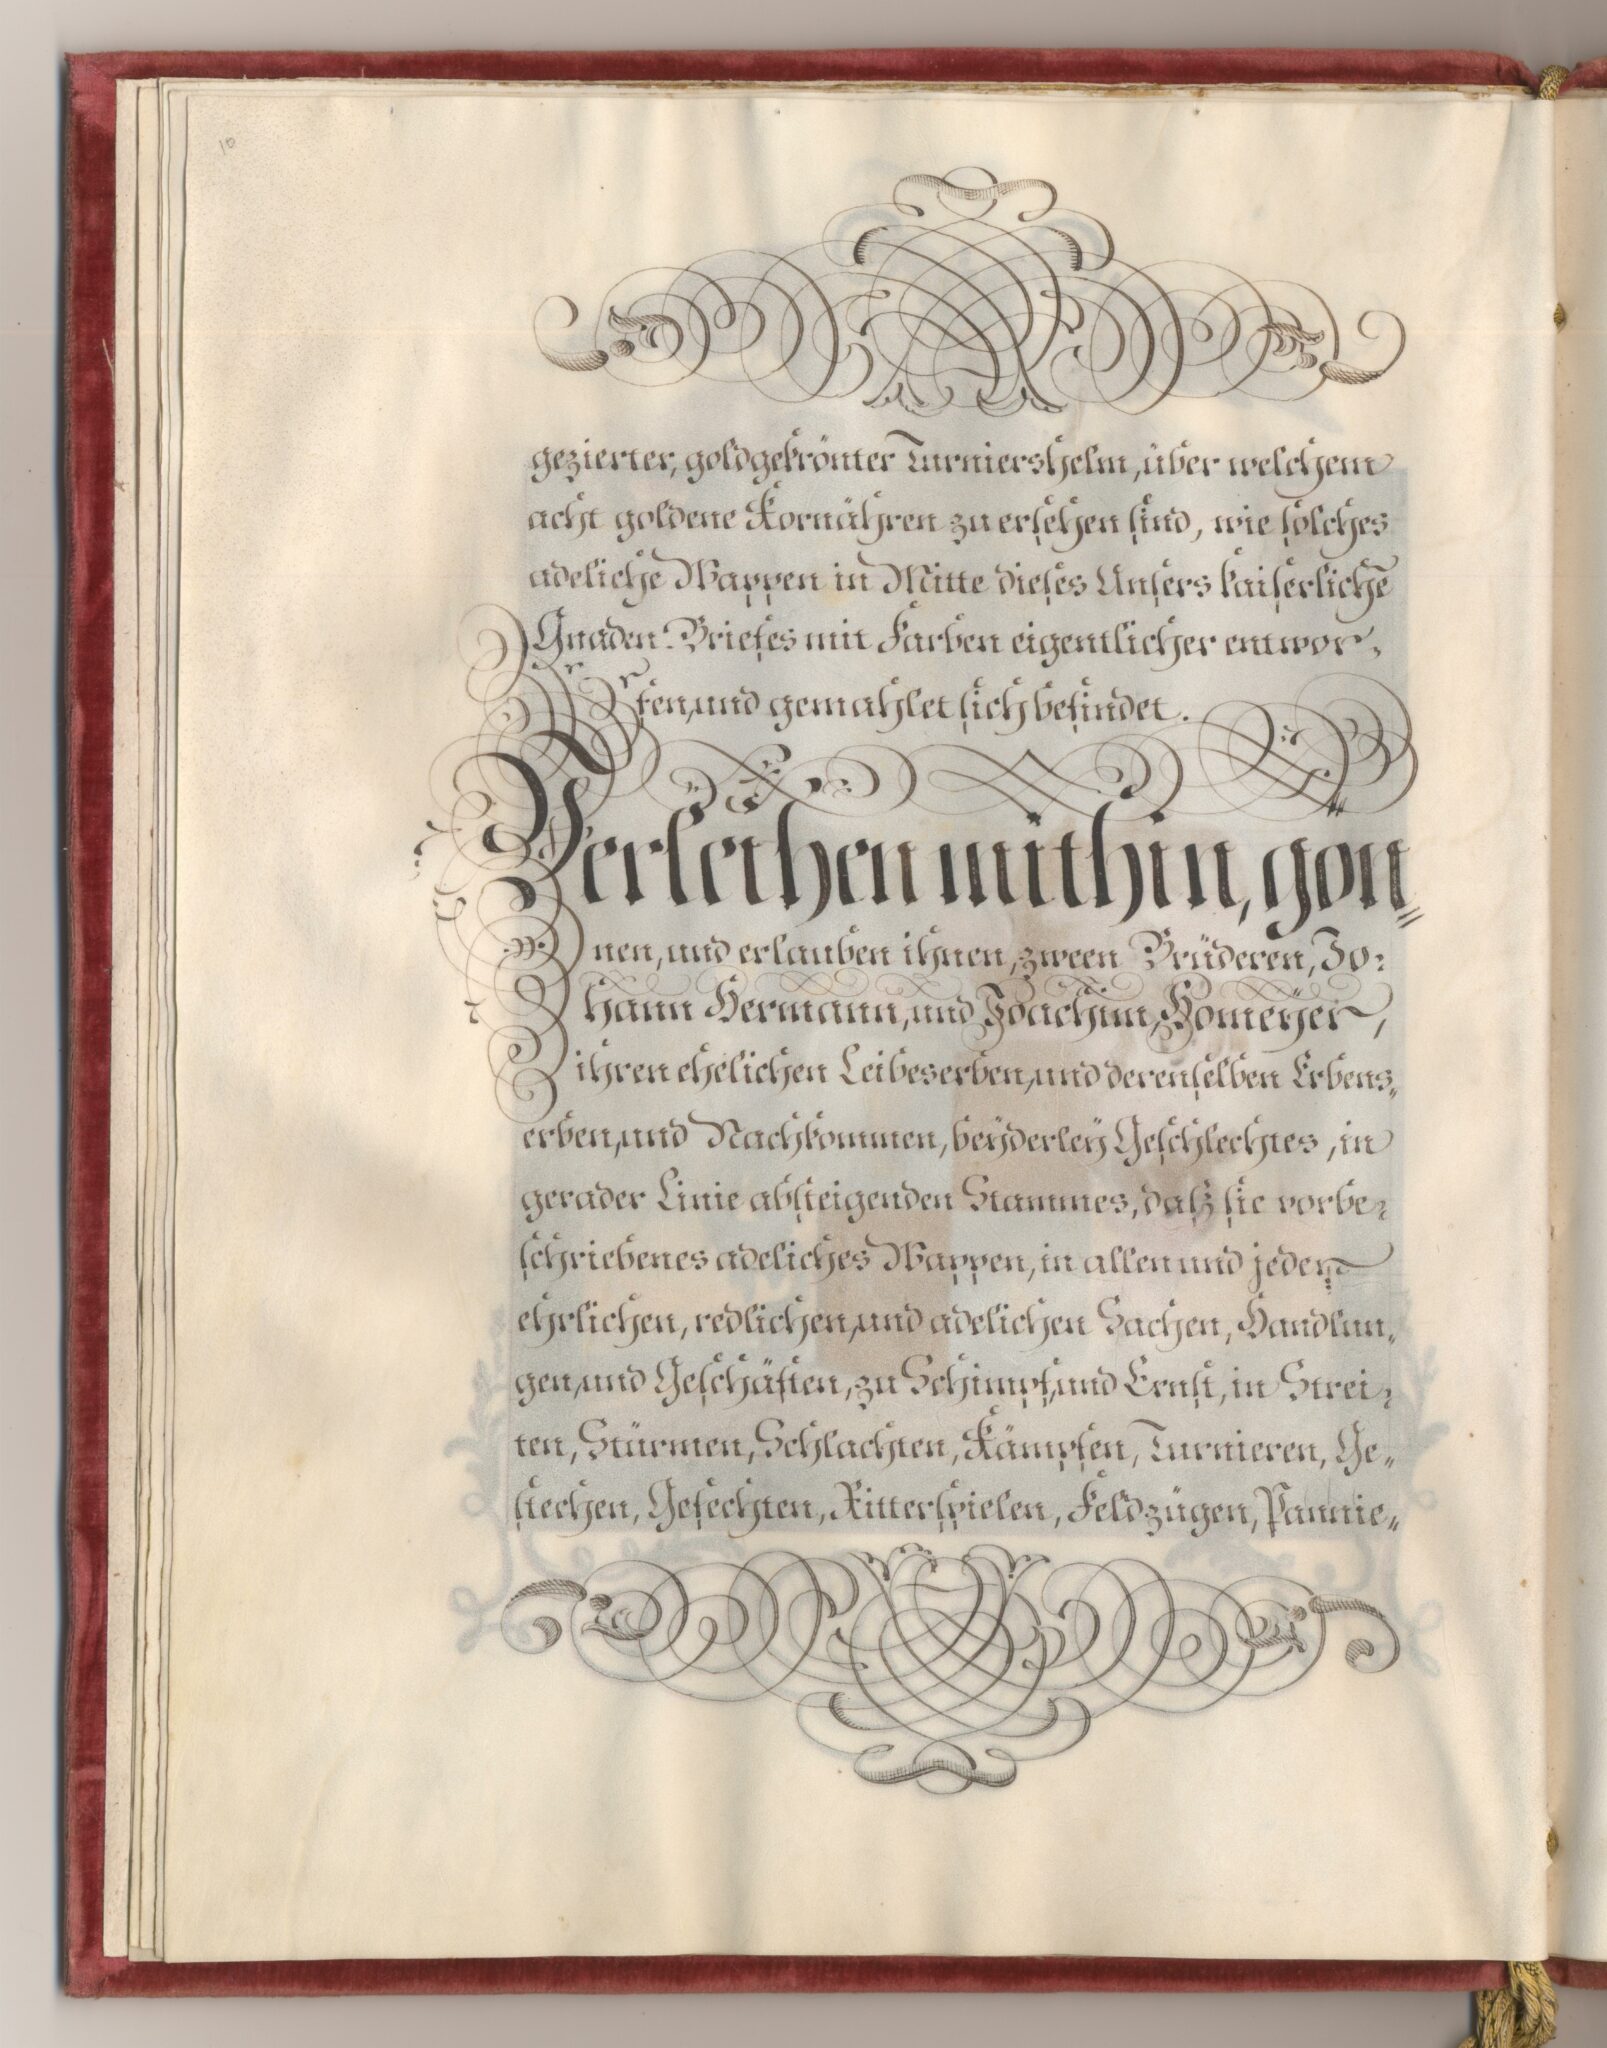 10
gezierter, goldgekrönter Turniershelm, über welchem
acht goldene Kornähren zu ersehen sind, wie solches
adeliche Wappen in Mitte dieses Unsers kaiserliche̅
Gnaden-Briefes mit Farben eigentlicher entwor-
fen, und gemahlet sich befindet.
Verleihen mithin, gön-
nen, und erlauben ihnen, zween Brüderen, Jo-
hann Hermann, und Joachim Bomeÿer,
ihren ehelichen Leibeserben, und derenselben Erbens-
erben, und Nachkommen, beÿderleÿ Geschlechtes, in
gerader Linie absteigenden Stammes, daß sie vorbe-
schriebenes adeliches Wappen, in allen und jeden
ehrlichen, redlichen, und adelichen Sachen, Handlun-
gen, und Geschäften, zu Schimpf, und Ernst, in Strei-
ten, Stürmen, Schlachten, Kämpfen, Turnieren, Ge-
stechen, Gefechten, Ritterspielen, Feldzügen, Pannie-